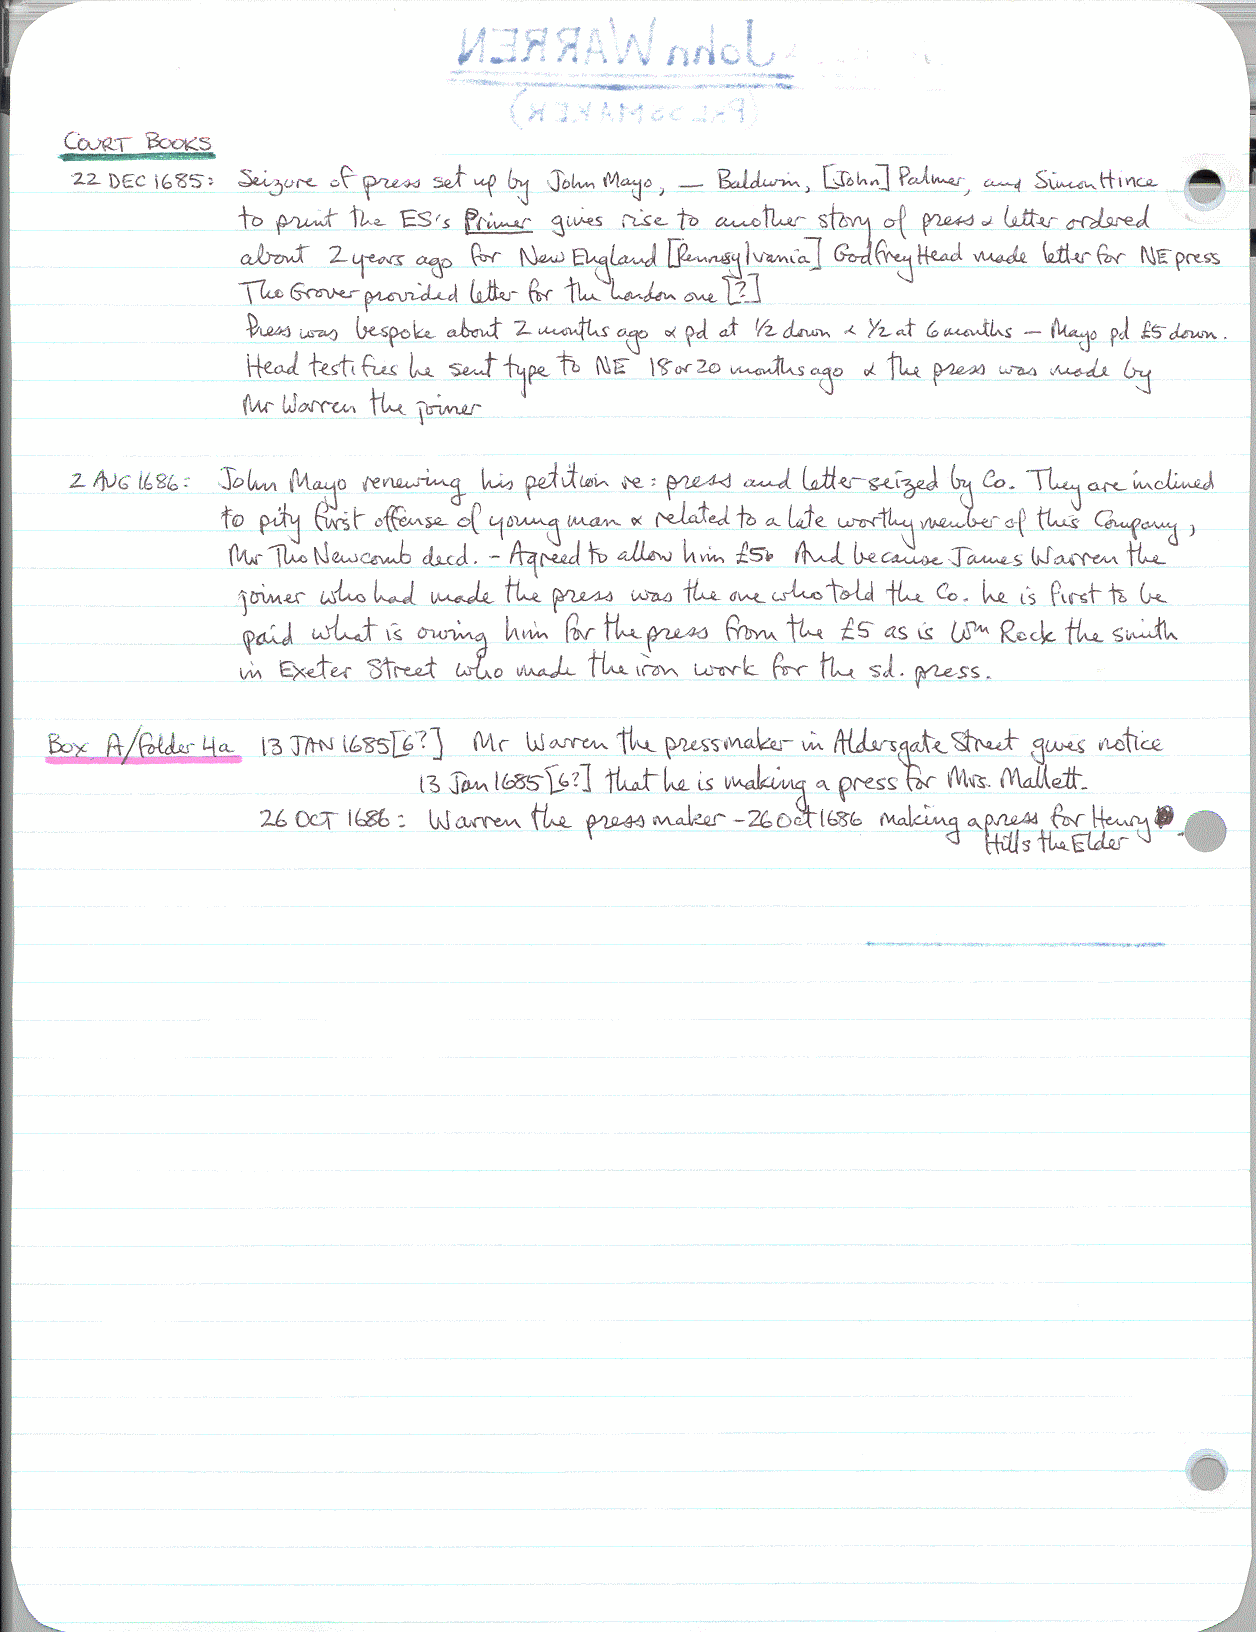 John WARREN
(PRESSMAKER)
COURT BOOKS
22 DEC 1685: Seizure of press set up by John Mayo, — Baldwin, [John] Palmer, and Simon Hince
to print the ES's Primer gives rise to another story of press & letter ordered
about 2 years ago for New England [Pennsylvania] Godfrey Head made letter for NE press
Tho Grover provided letter for the London one [?]
Press was bespoke about 2 months ago & pd at 1/2 down & 1/2 at 6 months — Mayo pd £5 down.
Head testifies he sent type to NE 18 or 20 months ago & the press was made by
Mr Warren the joiner
2 AUG 1686: John Mayo renewing his petition re: press and letter seized by Co. They are inclined
to pity first offense of young man & related to a late worthy member of this Company,
Mr Tho Newcomb decd. - Agreed to allow him £5. And because James Warren the
joiner who had made the press was the one who told the Co. he is first to be
paid what is owing him for the press from the £5 as is Wm Rock the smith
in Exeter Street who made the iron work for the sd. press.
Box A/Folder 4a 13 JAN 1685[6?] Mr Warren the pressmaker in Aldersgate Street gives notice
13 Jan 1685[6?] that he is making a press for Mrs. Mallett.
26 OCT 1686: Warren the pressmaker - 26 Oct 1686 making a press for Henry
Hills the Elder